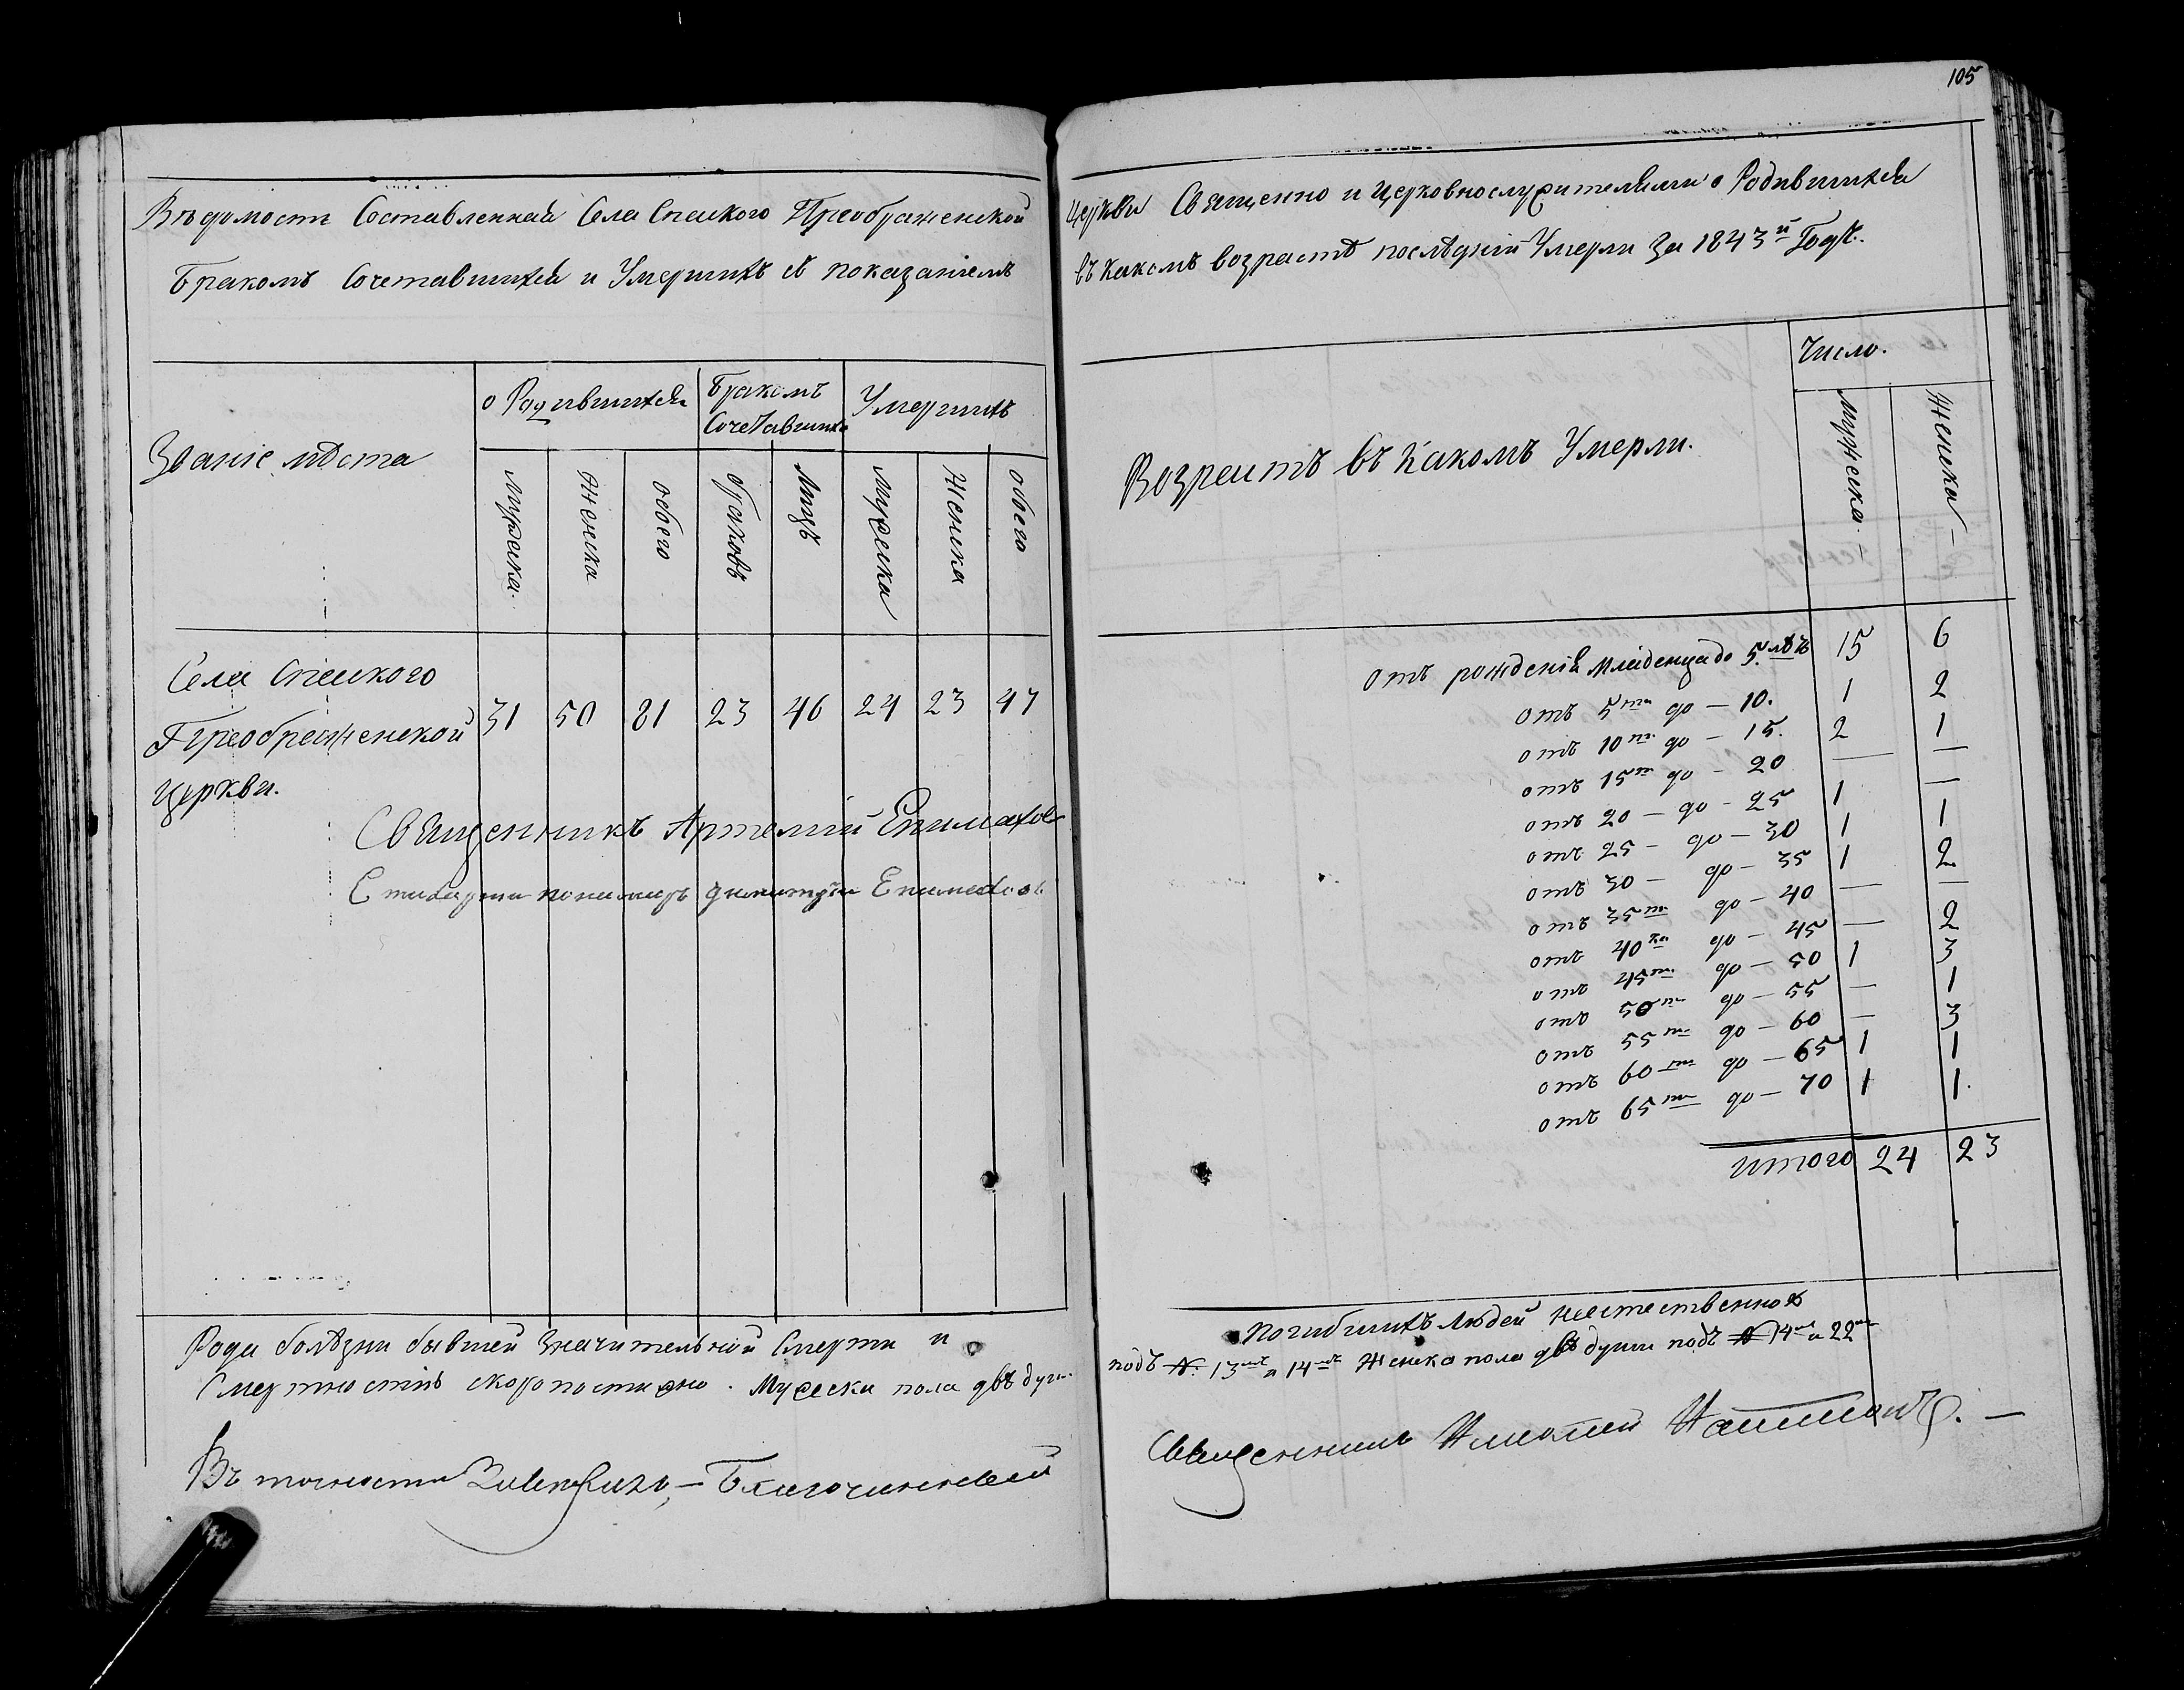 105
Вѣдомость Составленная Села Спаского Преображенской
Бракомъ Сочетавшихся и Умершихъ съ показаніемъ
Званіе мѣста
о Родившихся
Бракомъ
Сочетавшихся
Умершихъ
Мужеска
Женска
обоего
браковъ
лицъ
мужеска
Женска
обоего
Села Спаского
Преображенской
Церкви.
31 50 81 23 46 24 23 47
Священникъ Артемій Епимахов
Стихарный пономарь Димитрій Епимахов
Рода болѣзни бывшей Значительной Смерти и
Смертность скоропостижно. Мужеска пола двѣ души
Въ точности – Благочинный
Церкви Священно и Церковнослужителями о Родившихся
въ какомъ возрастѣ послѣдній Умерли За 1843й Годъ.
Возрастъ въ Какомъ Умерли.
Число.
Мужеска –
Женска –
Отъ рожденія младенца до 5. лѣтъ 15 6
отъ 5ти до – 10. 1 2
отъ 10ти до – 15. 2 1
отъ 15ти до – 20 — —
отъ 20 – до – 25 1 —
отъ 25 – до – 30 1 1
отъ 30 – до – 35 1 2
отъ 35ти до – 40 — —
отъ 40 до – 45 — 2
отъ 45ти до – 50 1 3
отъ 50ти до – 55 — 1
отъ 55ти до – 60 — 3
отъ 60ти до – 65 1 1
отъ 65ти до – 70 1 1.
итого 24 23
погибшихъ людей
подъ № 13мъ и 14мъ Женска пола двѣ души подъ № 14мъ и 22мъ
Священникъ